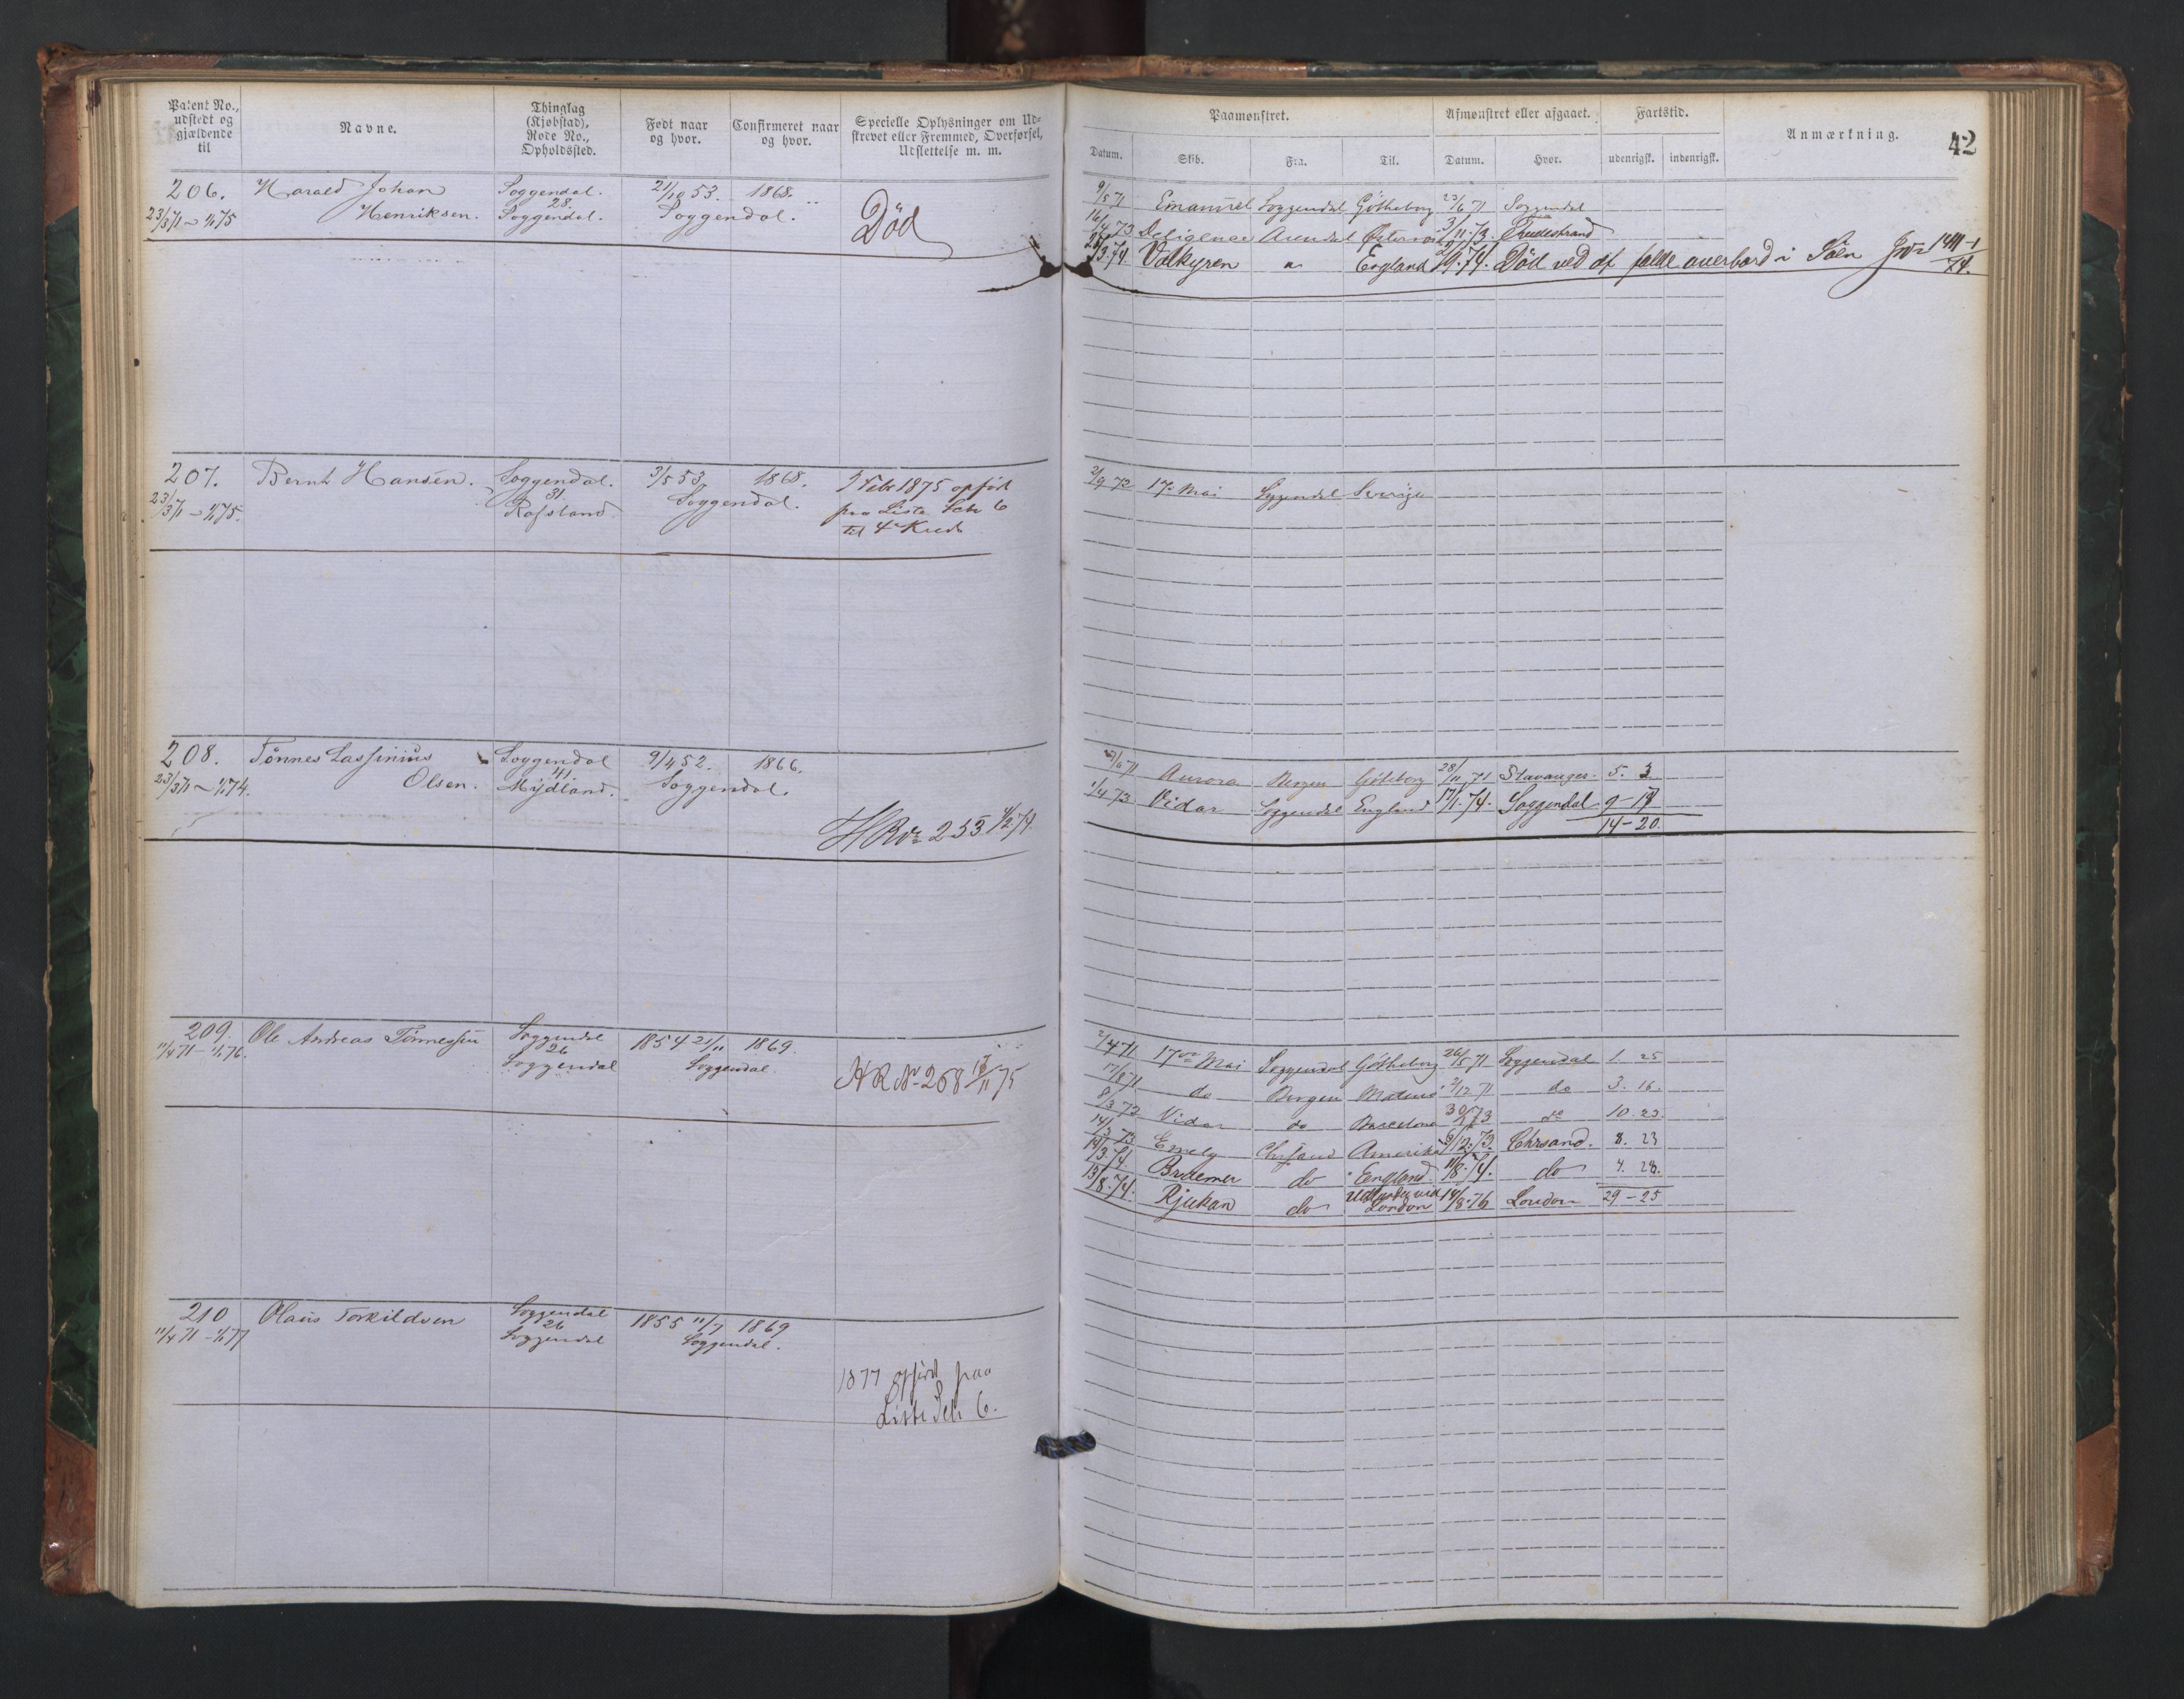 Patent No., udstedt og gjældende til
Navne.
Thinglag (Kjøbstad), Rode No., Opholdssted.
Født naar og hvor.
Confirmeret naar og hvor.
Specielle Oplysninger om Udskrevet eller Fremmed, Overførsel, Udslettelse m. m.
206. Harald Johan Soggendal. 21/10 53. 1868.
23/3 71 - 1/1 75 Henriksen. 28. Soggendal. Soggendal. Død
207. Bernt Hansen. Soggendal. 3/5 53 1868. I Febr 1875 opført
23/3 71 - 1/1 75. 31. Rafsland. Soggendal. paa Liste
til 4de Kreds
208. Tønnes Lassinius Soggendal 9/4 52. 1866.
23/3 71 - 1/1 74. Olsen. 41. Mydland. Soggendal.
HR No 253 4/2 74.
209. Ole Andreas Tønnessen Soggendal 1854 21/11 1869.
11/4 71 - 1/1 76. 26 Soggendal Soggendal.
HR No 268 75
210 Olaus Torkildsen Soggendal 1855 11/7 1869
11/4 71 - 1/1 77 26 Soggendal Soggendal.
1877 opført paa
Liste 6.
42
Paamønstret.
Afmønstret eller afgaaet.
Fartstid.
Anmærkning.
Datum. Skib. Fra. Til. Datum. Hvor. udenrigsk. indenrigsk.
9/5 71 Emanuel Soggendal Gøtheborg 23/6 71 Soggendal
16/4 73 Deligence Arendal 3/11 73.
74. Valkyren England 74. Død ved at falde overbord i Søen
2/9 72 17de Mai Soggendal Sverige
71 Aurora Bergen Gøteborg 28/11 71 Stavanger. 5. 3
1/4 73 Vidar Soggendal England 17/1 74. Soggendal 9-17
14-20.
2/4 71 17de Mai Soggendal Gøtheborg 26/5 71 Soggendal 1 25
17/8 71 do Bergen 2/12 71 do 3. 16.
8/3 72 Vidar do Barcelona 73 do 10. 23.
14/3 73 Emely Amerika 6/12 73. Chrsand. 8. 23
14/3 74 do England 11/8 74. do 4. 28.
13/8 74. Rjukan do London 14/8 76 London 29-25